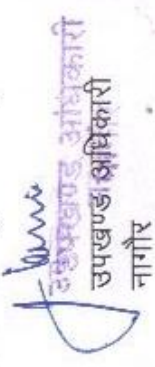 उपखण्ड अधिकारी
उपखण्ड अधिकारी
नागौर